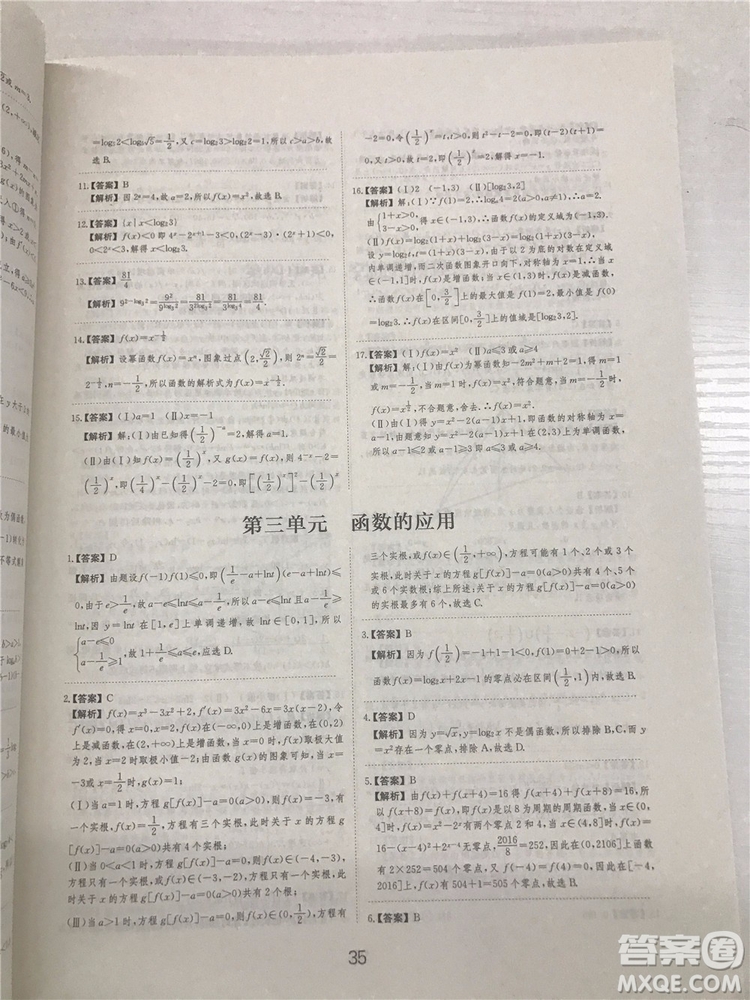 =log₅2<log₅√5=1/2,又c=log₂3>log₂2=1,所以c>a>b,故
选B.
11.【答案】B
【解析】因为2ᵃ=4,故a=2,所以f(x)=x²,故选B.
12.【答案】{x|x<log₂3}
【解析】f(x)<0即4ˣ-2ˣ⁺¹-3<0,(2ˣ-3)·(2ˣ+1)<0,
解得x<log₂3.
13.【答案】81/4
14.【答案】f(x)=x^(-1/2)
【解析】设幂函数f(x)=xⁿ,图象过点(2,√2/2),则2ⁿ=√2/2=
2^(-1/2),n=-1/2,所以函数的解析式为f(x)=x^(-1/2).
15.【答案】(Ⅰ)a=1 (Ⅱ)x=-1
【解析】解:(Ⅰ)由已知得(1/2)^(-a)=2,解得a=1.
(Ⅱ)由(Ⅰ)知f(x)=(1/2)ˣ,又g(x)=f(x),则4⁻ˣ-2=
(1/2)ˣ,即(1/4)ˣ-(1/2)ˣ-2=0,即[(1/2)ˣ]²-(1/2)ˣ
-2=0,令(1/2)ˣ=t,t>0,则t²-t-2=0,即(t-2)(t+1)
=0,又t>0,故t=2,即(1/2)ˣ=2,解得x=-1.
16.【答案】(Ⅰ)2 (-1,3) (Ⅱ)[log₂3,2]
【解析】解:(Ⅰ)∵f(1)=2,∴logₐ4=2(a>0,a≠1),∴a=2.
由{1+x>0, 3-x>0,得-1<x<3,∴函数f(x)的定义域为(-1,3).
(Ⅱ)f(x)=log₂(1+x)+log₂(3-x)=log₂(1+x)(3-x)
间单调递增,而二次函数图象开口向下,对称轴为x=1,
∴当x∈(-1,1]时,f(x)是增函数;当x∈(1,3)时,f(x)是减函数,
∴函数f(x)在[0,3/2]上的最大值是f(1)=2,最小值是f(0)
=log₂3,∴f(x)在区间[0,3/2]上的值域是[log₂3,2].
17.【答案】(Ⅰ)f(x)=x² (Ⅱ)a≤3或a≥4
【解析】解:(Ⅰ)由f(x)为幂函数知-2m²+m+2=1,得m=1
或m=-1/2,当m=1时,f(x)=x²,符合题意,当m=-1/2时,
f(x)=x^(1/2),不合题意,舍去.∴f(x)=x².
由题意知函数在(2,3)上为单调函数,
∴a-1≤2或a-1≥3,即a≤3或a≥4.
第三单元 函数的应用
1.【答案】D
【解析】由题设f(-1)f(1)≤0,即(1/e-a+lnt)(e-a+lnt)≤
0,由于e>1/e,故a-e≤lnt≤a-1/e有解,所以又因为函数y=
lnt,因为在[1,e]上单调递增,故lnt的取值为[0,1],所以
{a-e≤0, a-1/e≥1,故1+1/e≤a≤e,应选D.
2.【答案】C
【解析】f(x)=x³-3x²+2,f′(x)=3x²-6x=3x(x-2),令
f′(x)=0,得x=0或2,f(x)在(-∞,0)上是增函数,在(0,
2)上是减函数,在(2,+∞)上是增函数,x=0时f(x)取极大值
为2,x=2时f(x)取极小值-2;由函数g(x)的图象可知,当x=
-3或x=1/2时,g(x)=1;
(Ⅰ)当a=1时,方程g[f(x)]-a=0(a>0),则f(x)=-3有
一个实根,f(x)=1/2,方程有三个实根,此时关于x的方程
g[f(x)]-a=0(a>0)共有4个实根;
(Ⅱ)当0<a<1时,方程g[f(x)]-a=0(a>0),则f(x)∈(-4,-3),
方程只有一个实根,或f(x)∈(-3,-2),方程只有一个实根,
此时关于x的方程g[f(x)]-a=0(a>0)共有2个根;
(Ⅲ)当a>1时,方程g[f(x)]-a=0(a>0),则f(x)∈(0,1/2)有
三个实根,或f(x)∈(1/2,+∞),方程可能有1个、2个、3个
实根,此时关于x的方程g[f(x)]-a=0(a>0)共有4个、5个、
6个实根.综上所述,关于x的方程g[f(x)]-a=0(a>0)
的实根最多有6个,故选C.
3.【答案】B
【解析】因为f(1/2)=-1+1-1=-1<0,f(1)=0+2-1>0,所以
函数f(x)=log₂x+2x-1的零点必在区间(1/2,1)内,故
选B.
4.【答案】D
【解析】因为y=√x,y=log₂x不是偶函数,所以排除B,C,而
y=x²不存在一个零点,排除A,故选D.
5.【答案】B
【解析】由f(x)+f(x+4)=16得f(x+4)+f(x+8)=16,所
以f(x+8)=f(x),即f(x)是以8为周期的周期函数,当x∈(0,
4]时,f(x)=x²-2ˣ有两个零点2和4,当x∈(-4,0]时,f(x)=
16-(x-4)²+2ˣ⁻⁴无零点,2016/8=252,所以在(0,2106]上函数
有2×252=504个零点,又f(-4)=0,因此在[-4,
2016]上,f(x)有504+1=505个零点,故选B.
6.【答案】B
35
答案圈
MXQE.COM